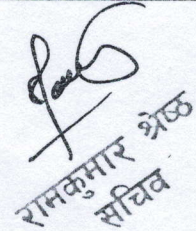 रामकुमार श्रेष्ठ
सचिव